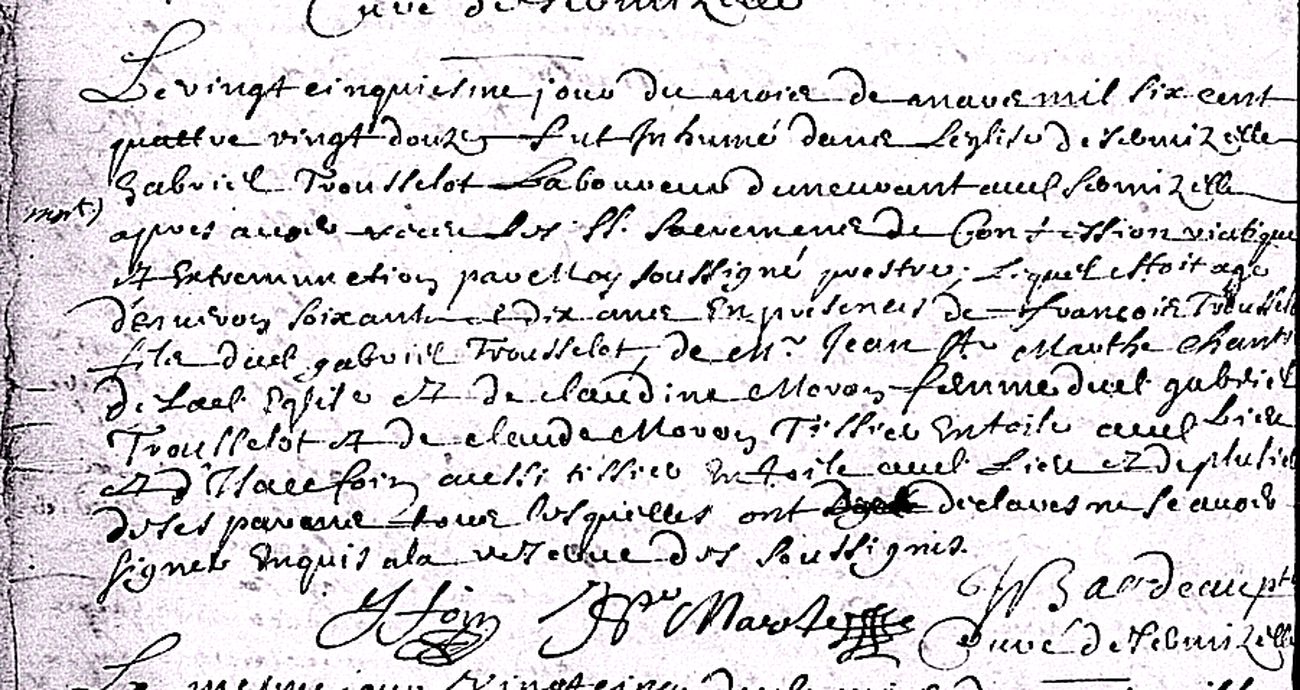 Curé de Sermizelle
Le vingt cinquiesme jour du mois de mars mil six cent
quattre vingt douze fut Inhumé dans Leglise de sermizelle
Gabriel Trousselot Laboureur demeurant aud Sermizelle
mort.)
apres avoir receu Les SS. Sacremens de Confession viatique
et Extremunction par Moy soussigné prestre, Lequel estoit agé
d'environ soixante et dix ans En presences de françois Trousselot
fils dud gabriel Trousselot, de Mr. Jean Marthe Chantre
de Lad Eglise et de claudine Moron femme dud gabriel
Trousselot et de claude Moron Tissier En toile aud Lieu
et d'Isaac foin aussi tissier En toile aud Lieu et de plusieurs
de ses parens tous lesquelles ont declarés ne scavoir
signer Enquis a la reserve des soussignés.
I foin Marthe Bardeau pte
Curé de Sermizelle
Le mesme jour vingt cinq du mois de